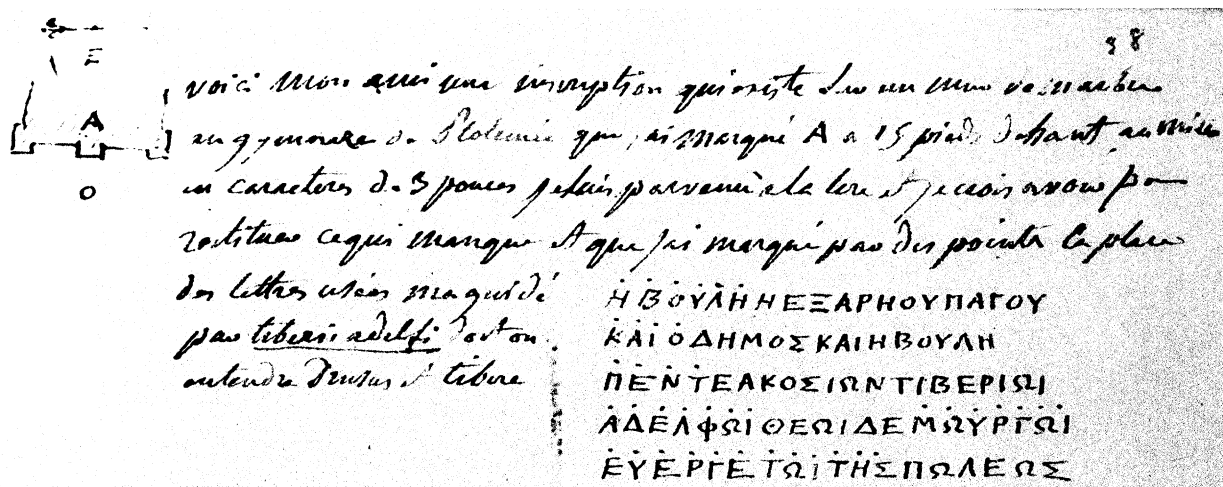 38
E
A
O
voici mon ami une inscription qui existe sur un mur de marbre
au gymnase de Ptolemée que j'ai marqué A a 15 pieds de haut au milieu
en caracteres de 3 pouces je suis parvenu a la lire et je crois avoir pu
restituer ce qui manque et que j'ai marqué par des points la place
des lettres usées ma guidé
par tiberii adelfi doit on
entendre Drusus et tibere
Η ΒΟΥΛΗ Η ΕΞ ΑΡΗΟΥ ΠΑΓΟΥ
ΚΑΙ Ο ΔΗΜΟΣ ΚΑΙ Η ΒΟΥΛΗ
ΠΕΝΤΕΑΚΟΣΙΩΝ ΤΙΒΕΡΙΩΙ
ΑΔΕΛΦΩΙ ΘΕΩΙ ΔΕΜΩΥΡΓΩΙ
ΕΥΕΡΓΕΤΩΙ ΤΗΣ ΠΩΛΕΩΣ